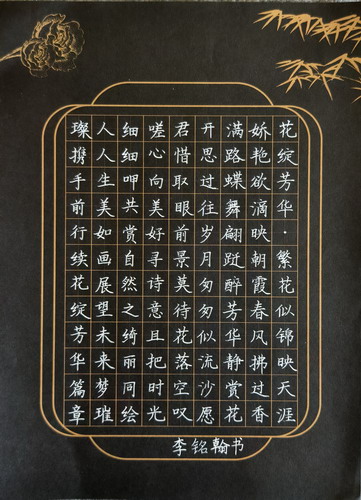 花绽芳华·繁花似锦映天涯
娇艳欲滴映朝霞春风拂过香
满路蝶舞翩跹醉芳华静赏花
开思过往岁月匆匆似流沙愿
君惜取眼前景莫待花落空叹
嗟心向美好寻诗意且把时光
细细呷共赏自然之绮丽同绘
人人生美如画展望未来梦璀
璨携手前行续花绽芳华篇章
李铭翰书